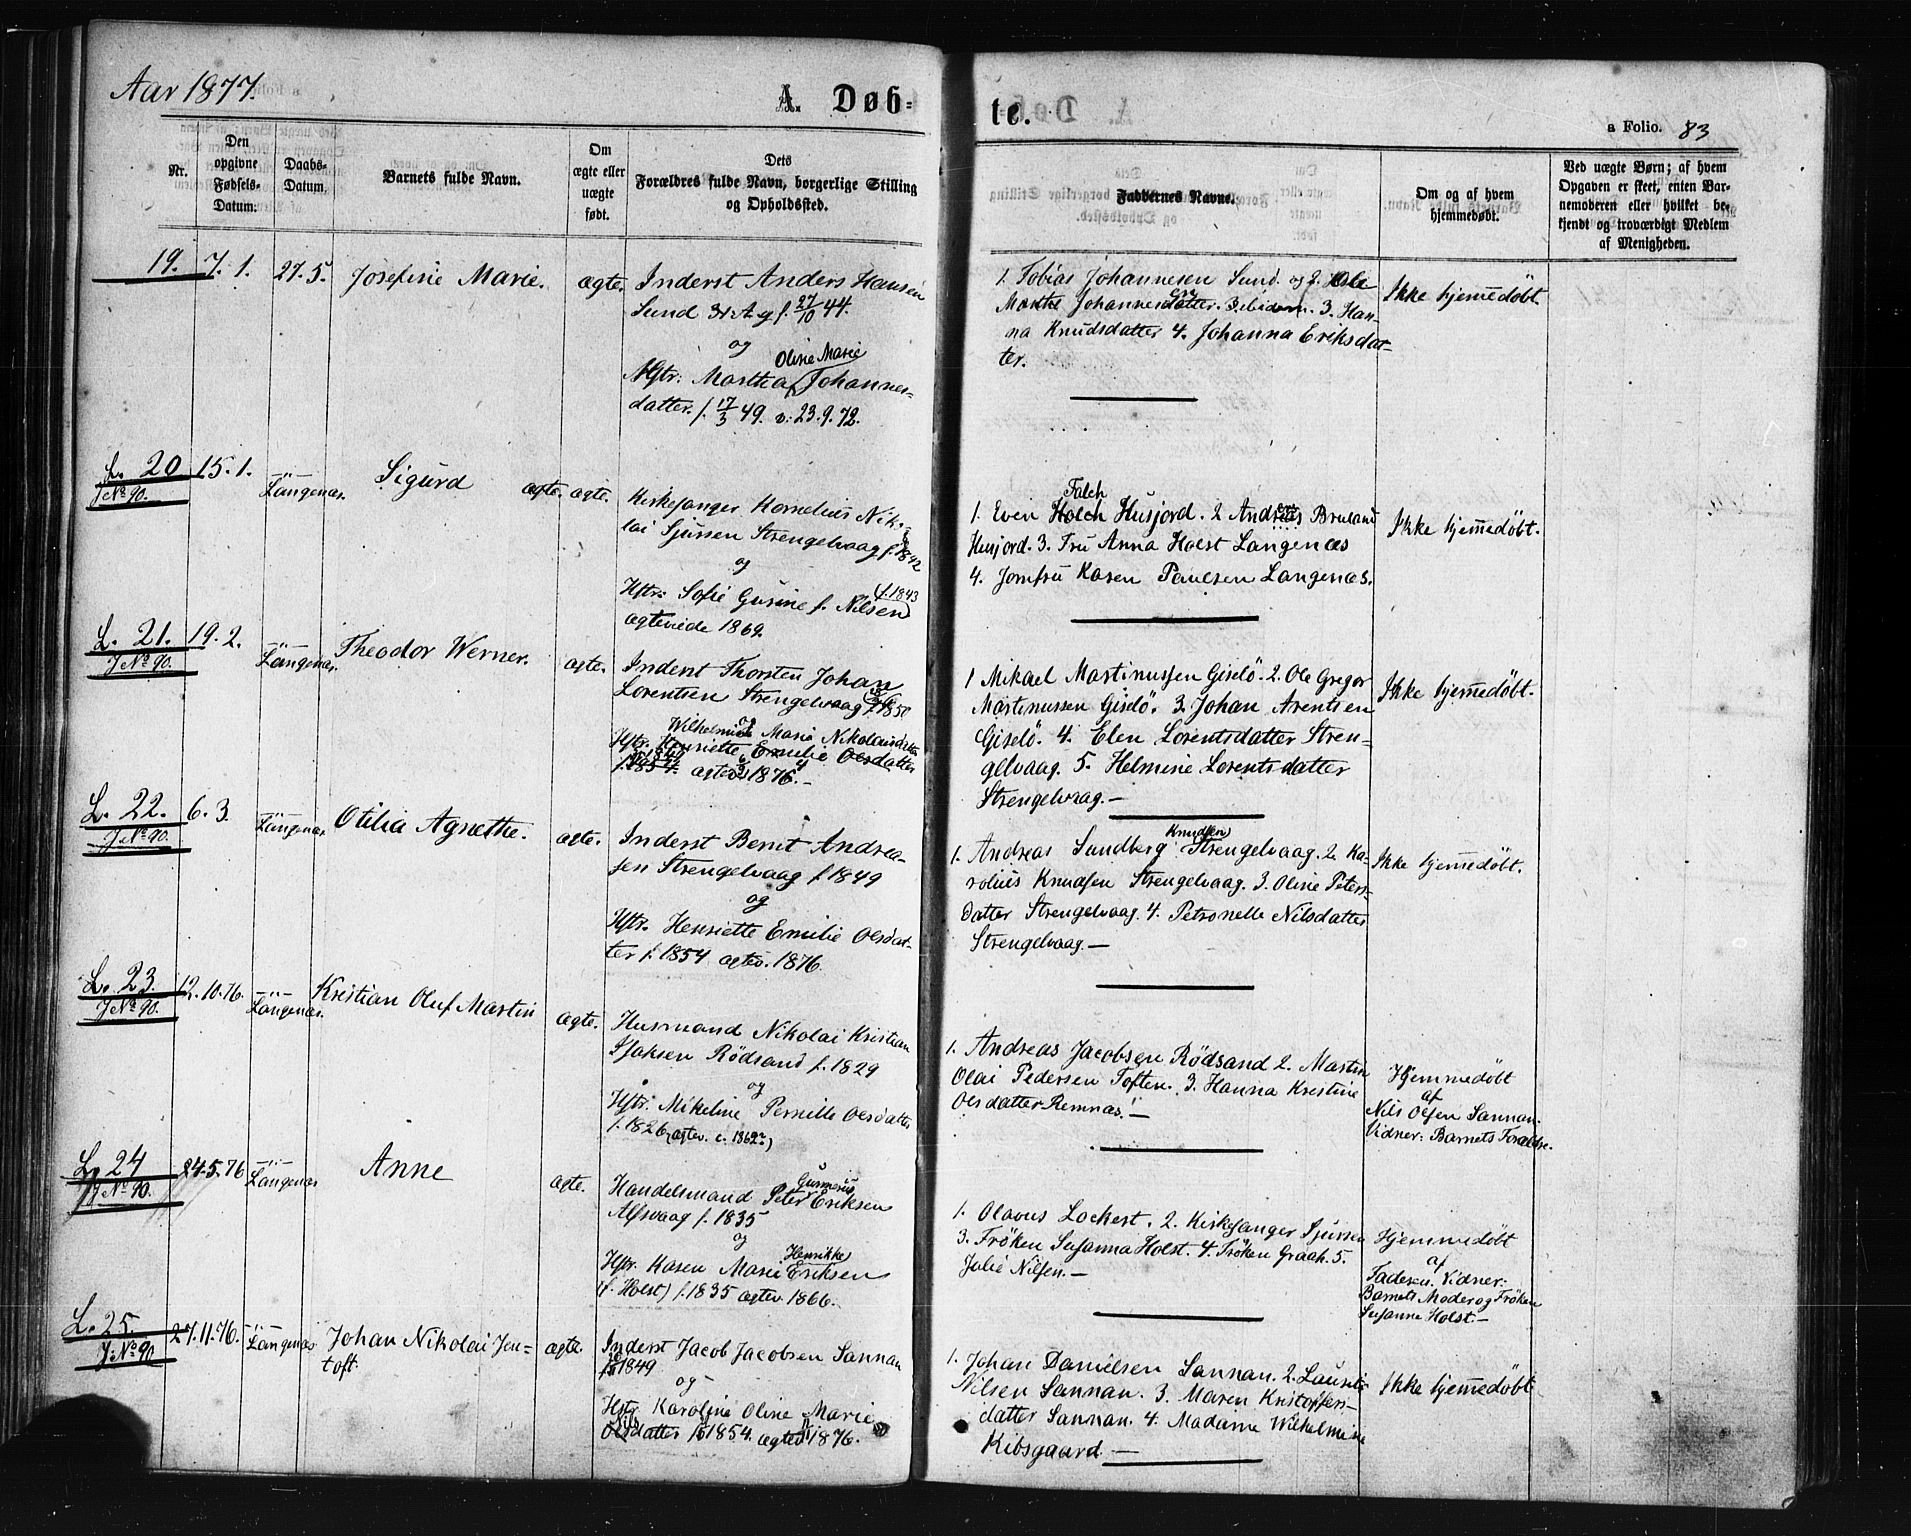 Aar 1877.
A. Døb-
te.
a Folio. 83
Nr.
Den
opgivne
Fødsels-
Datum:
Daabs-
Datum.
Barnets fulde Navn.
Om
ægte eller
uægte
født.
Dets
Forældres fulde Navn, borgerlige Stilling
og Opholdssted.
Faddernes Navne.
Om og af hvem
hjemmedøbt.
Ved uægte Børn; af hvem
Opgaven er skeet, enten Bar-
nemoderen eller hvilket be-
kjendt og troværdigt Medlem
af Menigheden.
19. 7.1. 27.5. Josefine Marie. ægte.
Inderst Anders Hansen
Sund f. 27/10 44.
og
Oline Marie
Martha Johannes-
datter. f. 17/3 49. v: 23.9.72.
1. Tobias Johannesen Sund. og 2. Ole
Johannes
3. Han-
na Knudsdatter 4. Johanna Eriksdat-
ter.
Ikke hjemmedøbt.
L. 20 15.1. Langenæs. Sigurd ægte. ægte.
J No 90.
Kirkesanger Kornelius Nik-
lai Sjursen Strengelvaag f. 1842
og
Hstr: Sofie Gusine f. Nilsen (f. 1843)
ægteviede 1869.
Falch
1. Even Holch Husjord. 2 Andreas Bruland
Husjord. 3. Fru Anna Holst Langenæs
4. Jomfru Karen Paulsen Langenæs.
Ikke hjemmedøbt.
L. 21. 19.2. Langenæs. Theodor Werner. ægte.
J No 90.
Inderst Thorsten Johan
Lorentsen Strengelvaag f. 1850
og
Wilhelmine Marie Nikolaisdatter
Hstr. Henriette Emilie Olsdatter
f. 1854. ægtev. 1876.-
1 Mikael Martinussen Giselö. 2. Ole Gregor
Martinussen Giselö. 3. Johan Arentsen
Giselö. 4. Elen Lorentsdatter Stren-
gelvaag. 5. Helmine Lorentsdatter
Strengelvaag.—
Ikke hjemmedøbt.
L. 22. 6.3. Langenæs. Otilia Agnethe. ægte.
J No 90.
Inderst Bernt Andrea-
sen Strengelvaag f. 1849
og
Hstr. Henriette Emilie Olsdat-
ter f. 1854 ægtev. 1876.
Knudsen
1. Andreas Sundberg Strengelvaag. 2. Ka-
rolius Knudsen Strengelvaag. 3. Oline Peters-
datter Strengelvaag. 4. Petronelle Nilsdatter
Strengelvaag.—
Ikke hjemmedøbt.
L. 23. 12.10.76. Langenæs. Kristian Oluf Martin ægte.
J No 90.
Husmand Nikolai Kristian
Isaksen Rödsand f. 1829
og
Hstr. Mikeline Pernille Olsdatter
f. 1826, ægtev. c. 1862?)
1. Andreas Jacobsen Rödsand 2. Martin
Olai Pedersen Toften. 3. Hanna Kristine
Olsdatter Remnæs.—
Hjemmedøbt
af
Nils Olsen Sannan.
Vidner: Barnets Forældre.
L. 24 24.5.76 Langenæs Anne ægte.
J No 90.
Gunnerus
Handelsmand Peter Eriksen
Alfsvaag f. 1835
og
Henrikke
Hstr. Karen Marie Eriksen
(f. Holst) f. 1835 ægtev. 1866.
1. Olavus Lockert. 2. Kirkesanger Sjursen
3. Fröken Susanna Holst. 4. Fröken Graah. 5.
Julie Nilsen.—
Hjemmedøbt
af
Faderen. Vidner:
Barnets Moder og Fröken
Susanne Holst.—
L. 25. 27.11.76. Langenæs Johan Nikolai Jen-
toft. ægte.
J. No 90
Inderst Jacob Jacobsen Sannan
f. 1849
og
Hstr. Karoline Oline Marie
Nils
Olsdatter f. 1854. ægtev. 1876.
1. Johan Danielsen Sannan. 2. Laurits
Nilsen Sannan. 3. Maren Kristoffers-
datter Sannan. 4. Madame Wilhelmine
Kibsgaard.—
Ikke hjemmedøbt